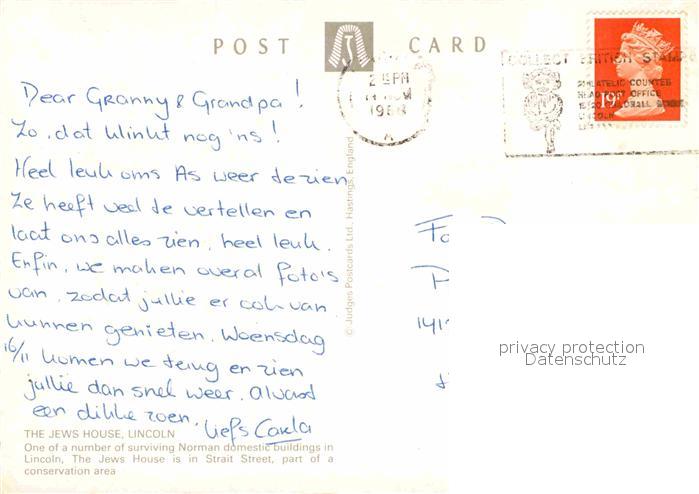 POST CARD
2 15 PM
1988
COLLECT BRITISH STAMPS
PHILATELIC COUNTER
HEAD POST OFFICE
LINCOLN
19P
Dear Granny & Grandpa!
Zo, dat klinkt nog 'ns!
Heel leuk om As weer te zien
Ze heeft veel te vertellen en
laat ons alles zien, heel leuk.
Enfin, we maken overal foto's
van, zodat jullie er ook van
kunnen genieten. Woensdag
16/11 komen we terug en zien
jullie dan snel weer. Alvast
een dikke zoen.
liefs Carla
© Judges Postcards Ltd., Hastings, England
privacy protection
Datenschutz
THE JEWS HOUSE, LINCOLN
One of a number of surviving Norman domestic buildings in
Lincoln, The Jews House is in Strait Street, part of a
conservation area